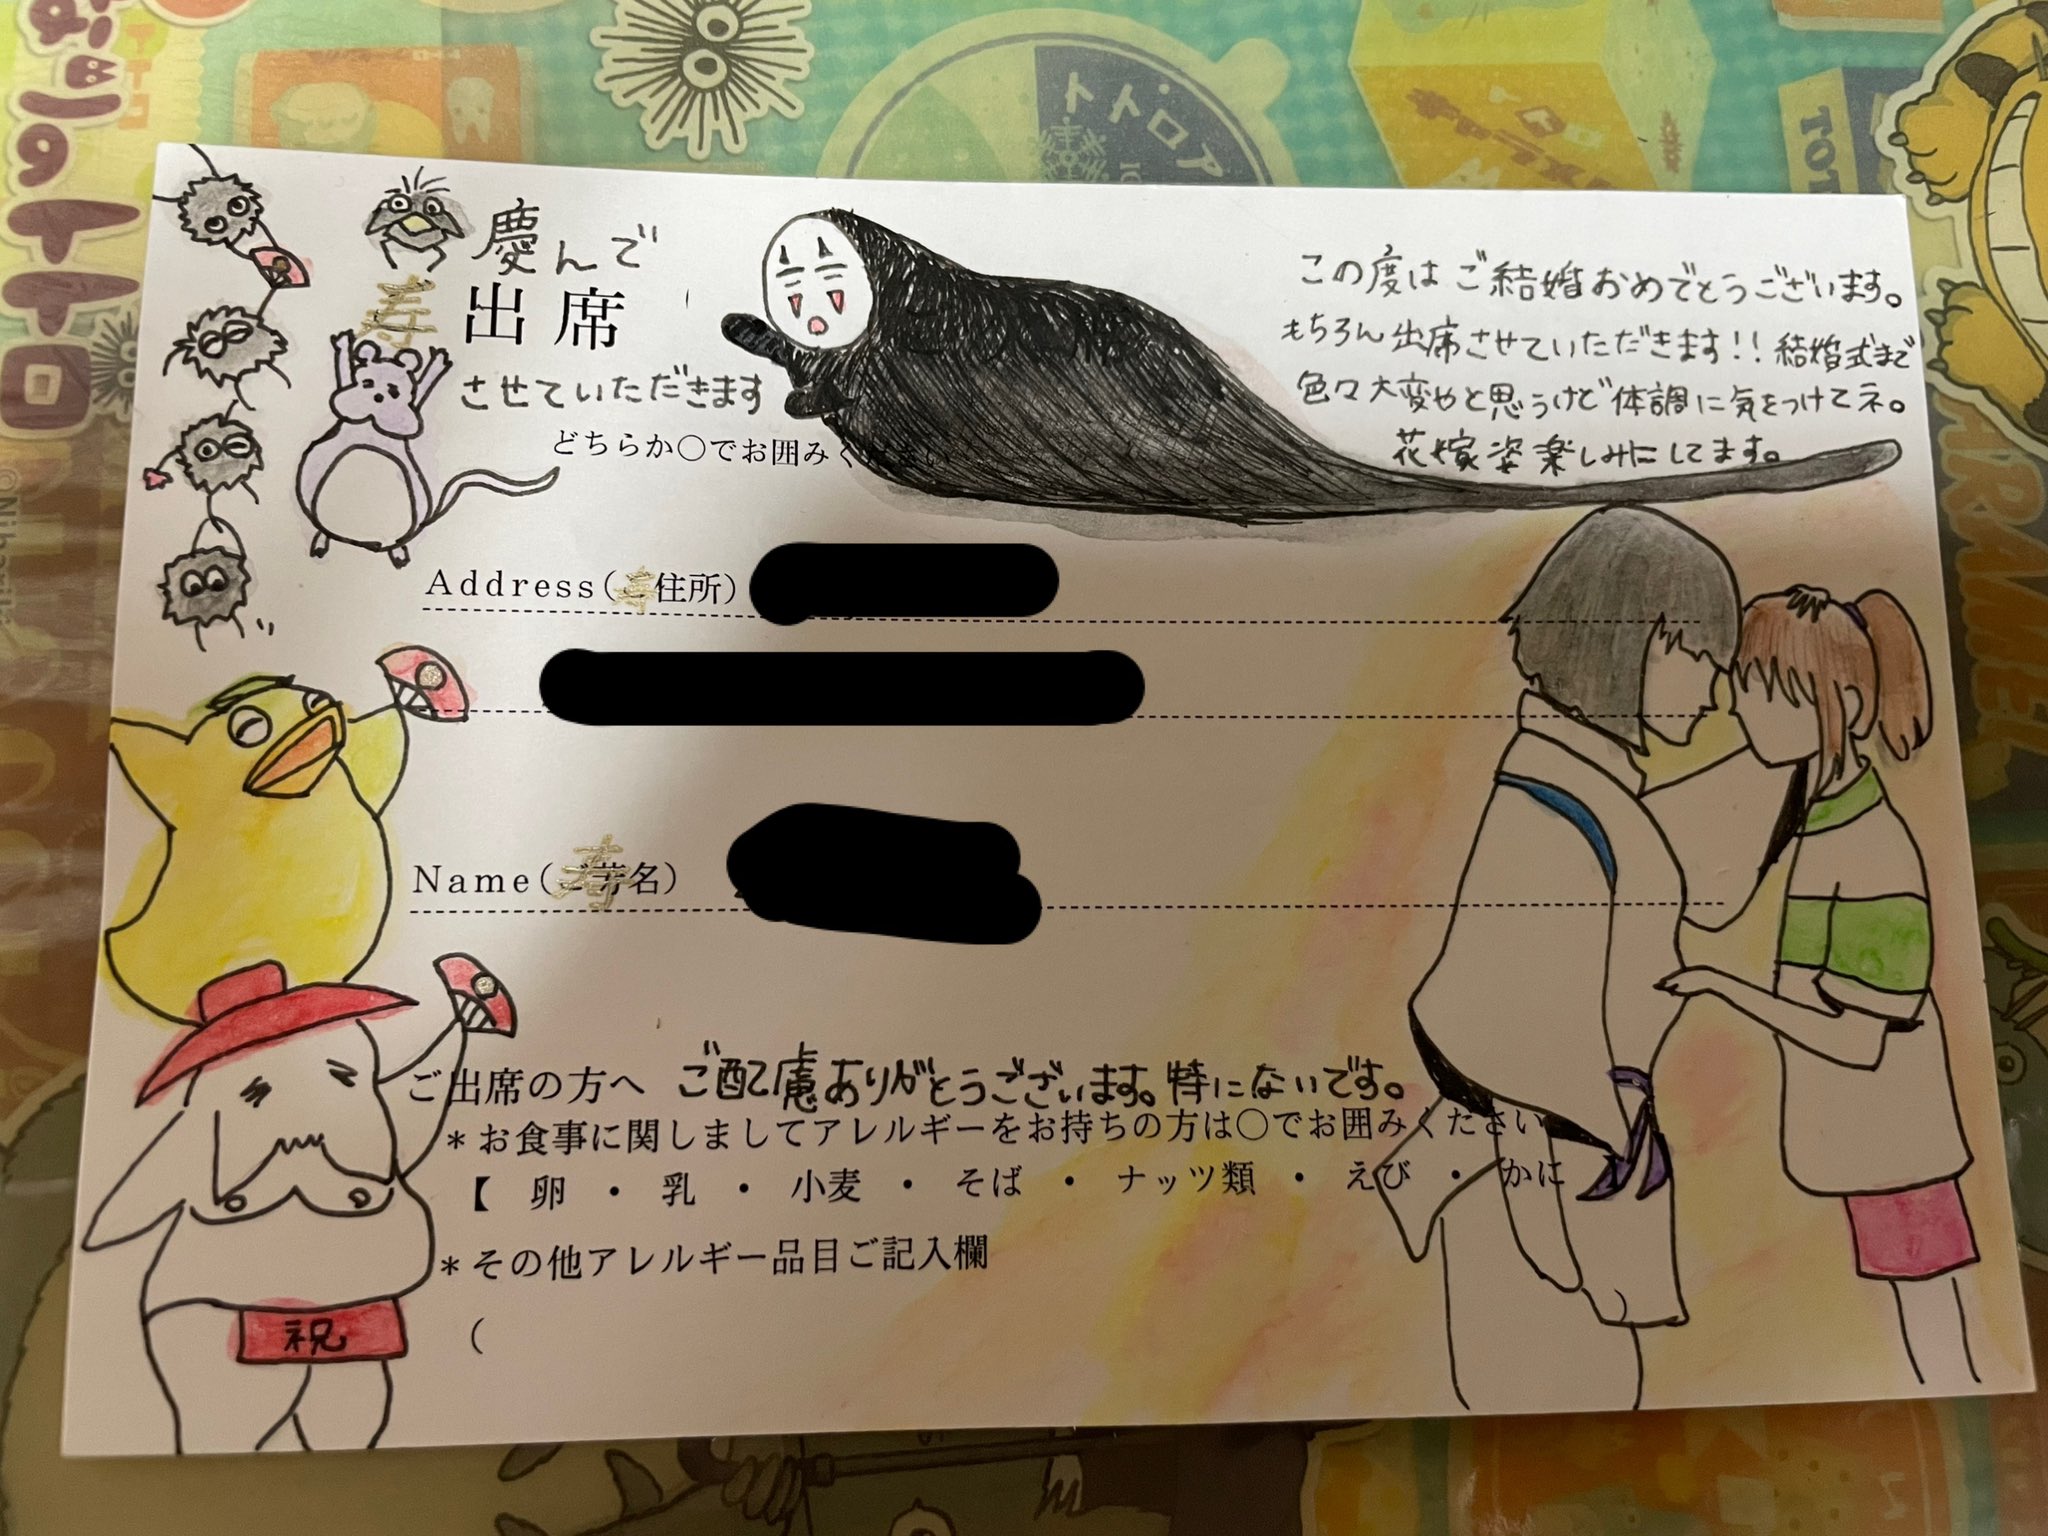 となりのトトロ
トトロア
TOT
ARAMEL
慶んで
寿 出席
させていただきます
どちらか〇でお囲みください
この度はご結婚おめでとうございます。
もちろん出席させていただきます!! 結婚式まで
色々大変やと思うけど体調に気をつけてネ。
花嫁姿楽しみにしてます。
Address(寿住所)
Name(寿名)
ご出席の方へ ご配慮ありがとうございます。特にないです。
*お食事に関しましてアレルギーをお持ちの方は〇でお囲みください
【 卵 ・ 乳 ・ 小麦 ・ そば ・ ナッツ類 ・ えび ・ かに
*その他アレルギー品目ご記入欄
(
祝